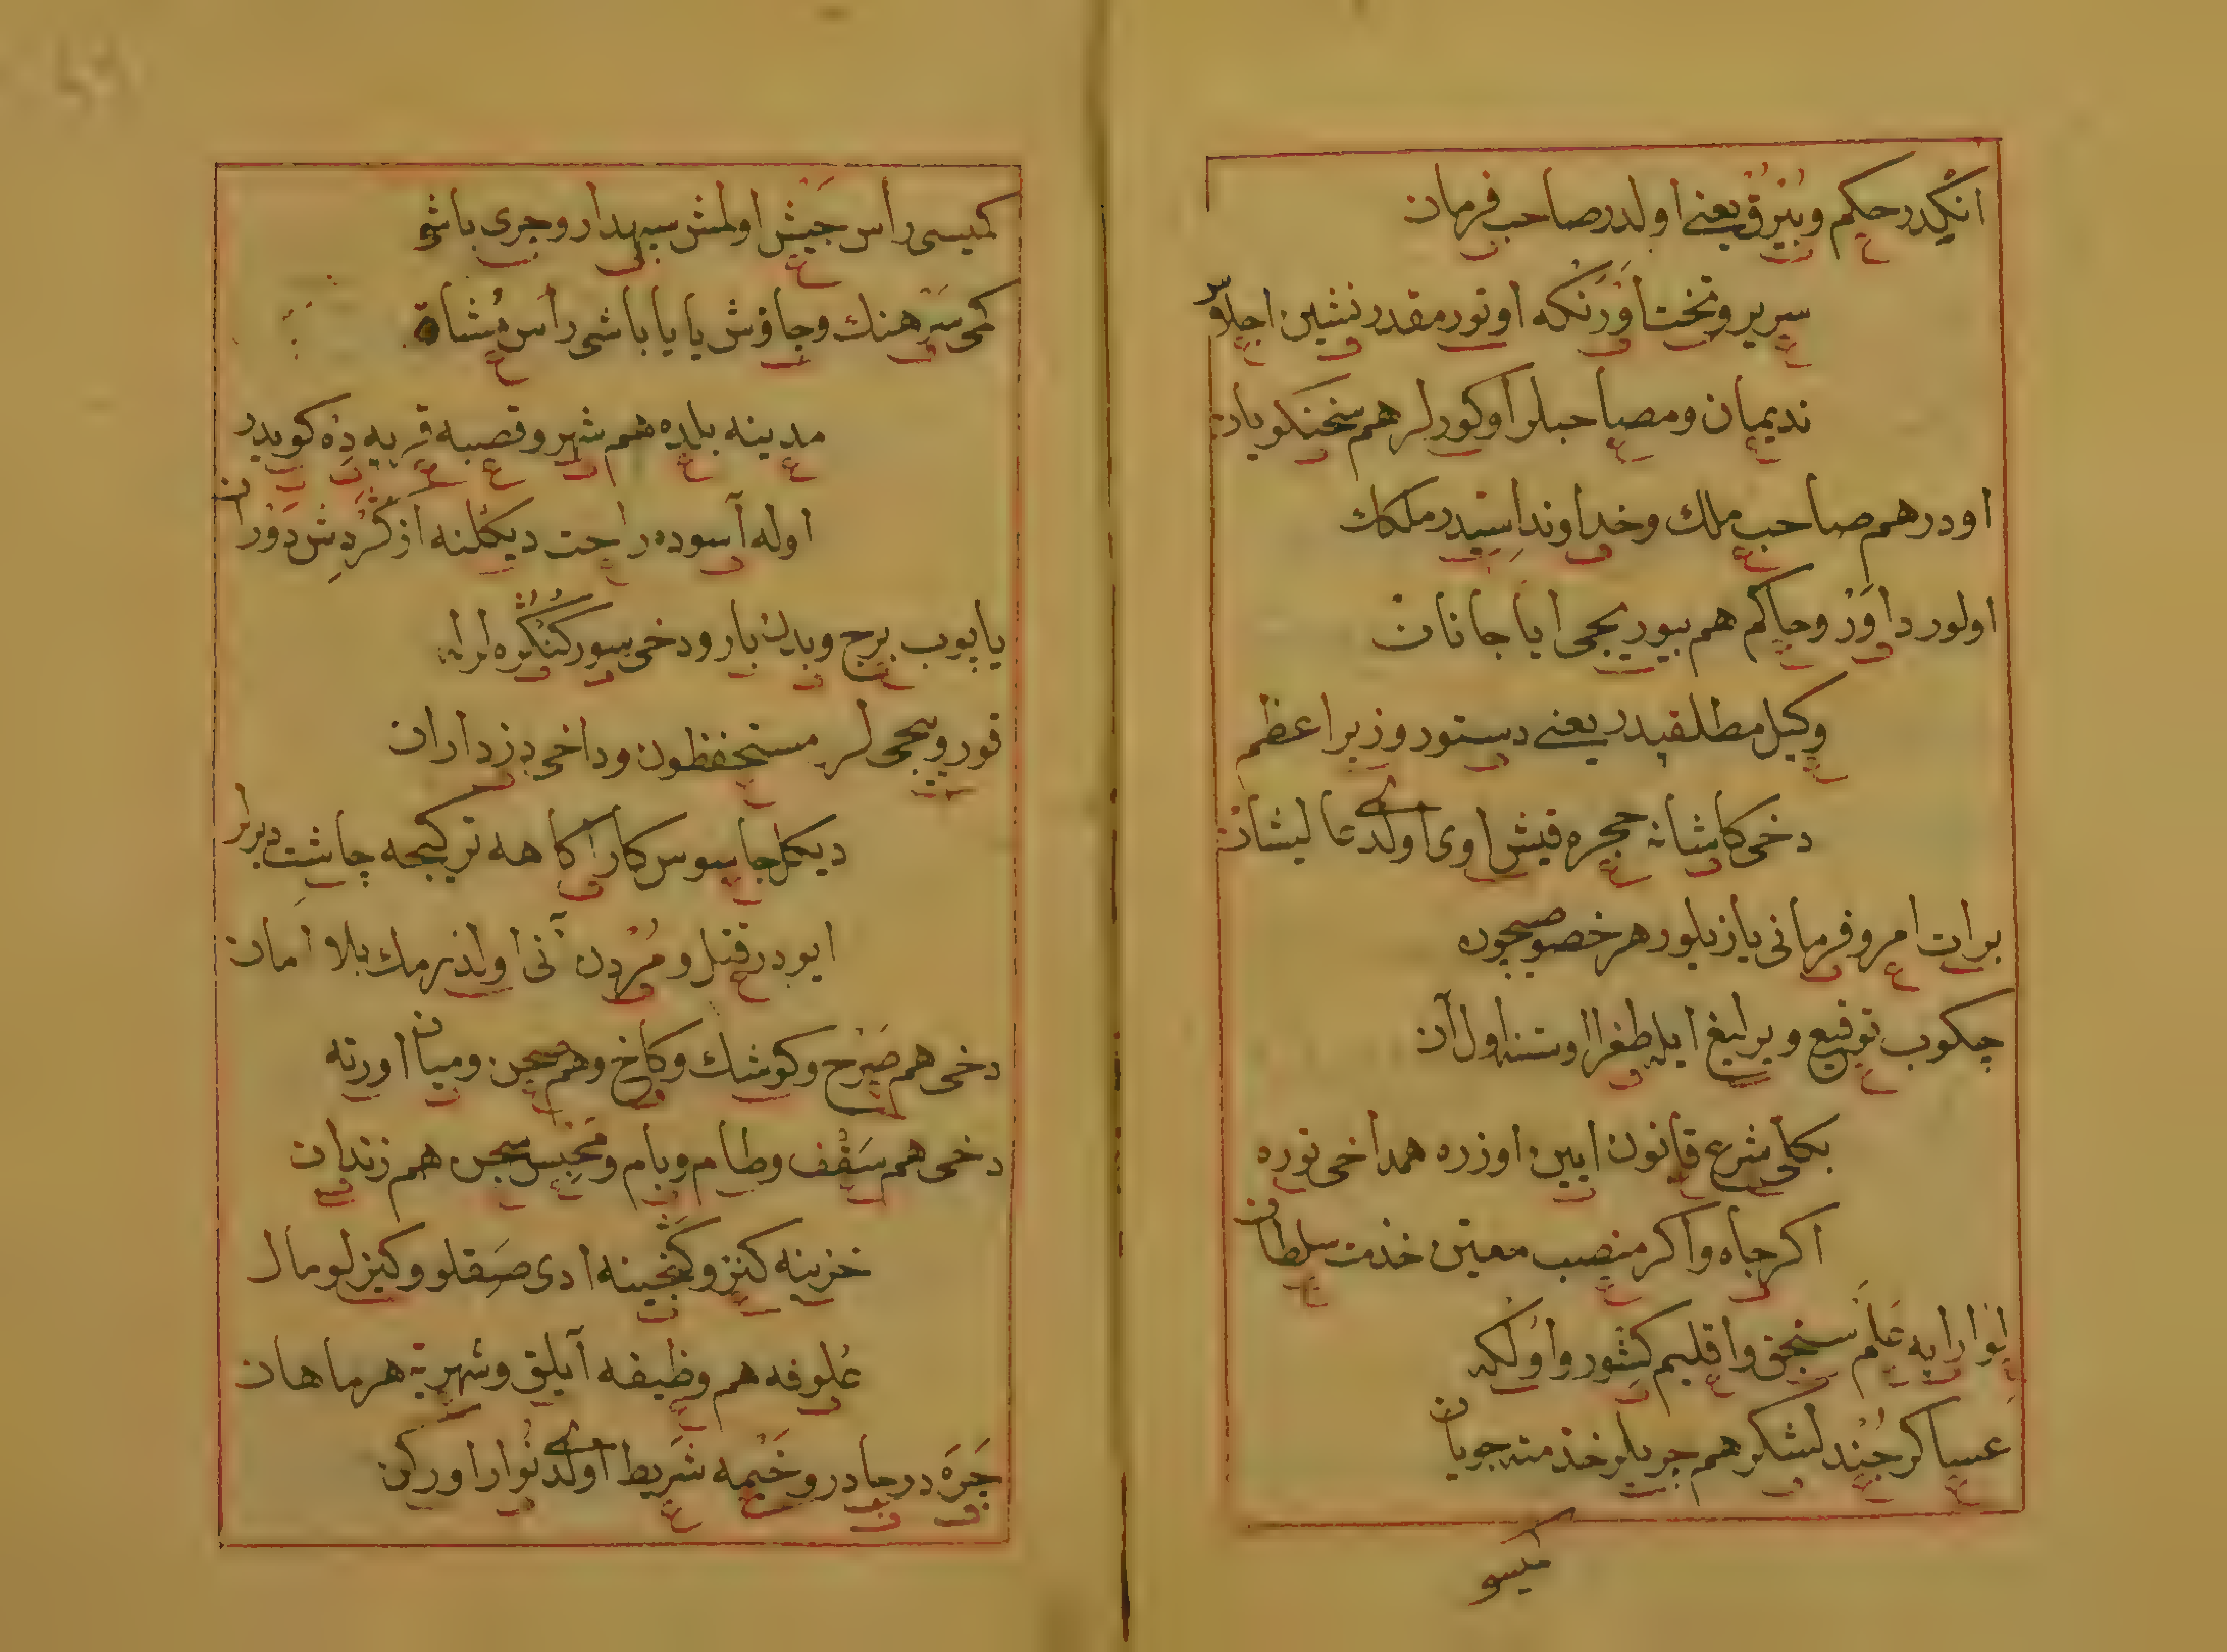 انكدر حكم و بيرق يعنے اولدر صاحب فرمان
سرير و تخت اورنكه اوتور مقدر نشين اجلاس
نديمان و مصاحبلر اوكورلر هم سخنكويان
اودر هم صاحب ملك و خداوند اسيدر ملكك
اولور داور و حاكم هم بيوريجى ايا جانان
وكيل مطلقيدر يعنے دستور وزير اعظم
دخى كاشانه حجره قيش اوى اولدے عاليشان
برات امر و فرمانى يازيلور هر خصوصيچون
چكوب توقيع و يرليغ ايله طغرا اوستنه اول آن
بكلى شرع قانون ايين اوزره همداخى توره
اكر جاه و اكر منصب معين خدمت سلطان
لوا رايه علم سنجق و اقليم كشور و اولكه
عساكر جند لشكر هم چريلر خذمته جويان
كميسو
كميسى رأس جيش اولمش سپهدار و چرى باشى
كمى سرهنك و چاوش يايا باشى رأس مشاة
مدينه بلده هم شهر و قصبه قريه ده كويدر
اوله آسوده راحت ديكلنه از كردش دوران
ياپوب برج و بدن بارو دخى سور كنكره لرله
قورويجى لر مستحفظون و داخى دزداران
ديكل جاسوس كارآكاهه تركيجه چاشت ديرلر
ايودر قتل و مردن آنى اولذرمك بلا امان
دخى هم صرح و كوشك و كاخ و هم صحن و ميان اورته
دخى هم سقف و طام و بام و محبس سجن هم زندان
خزينه كنز و كنجينه ادى صقلو و كيزلو مال
علوفه هم وظيفه آيلق و شهريه هر ماهان
چره در چادر و خيمه شريط اولدے نوار اوركن